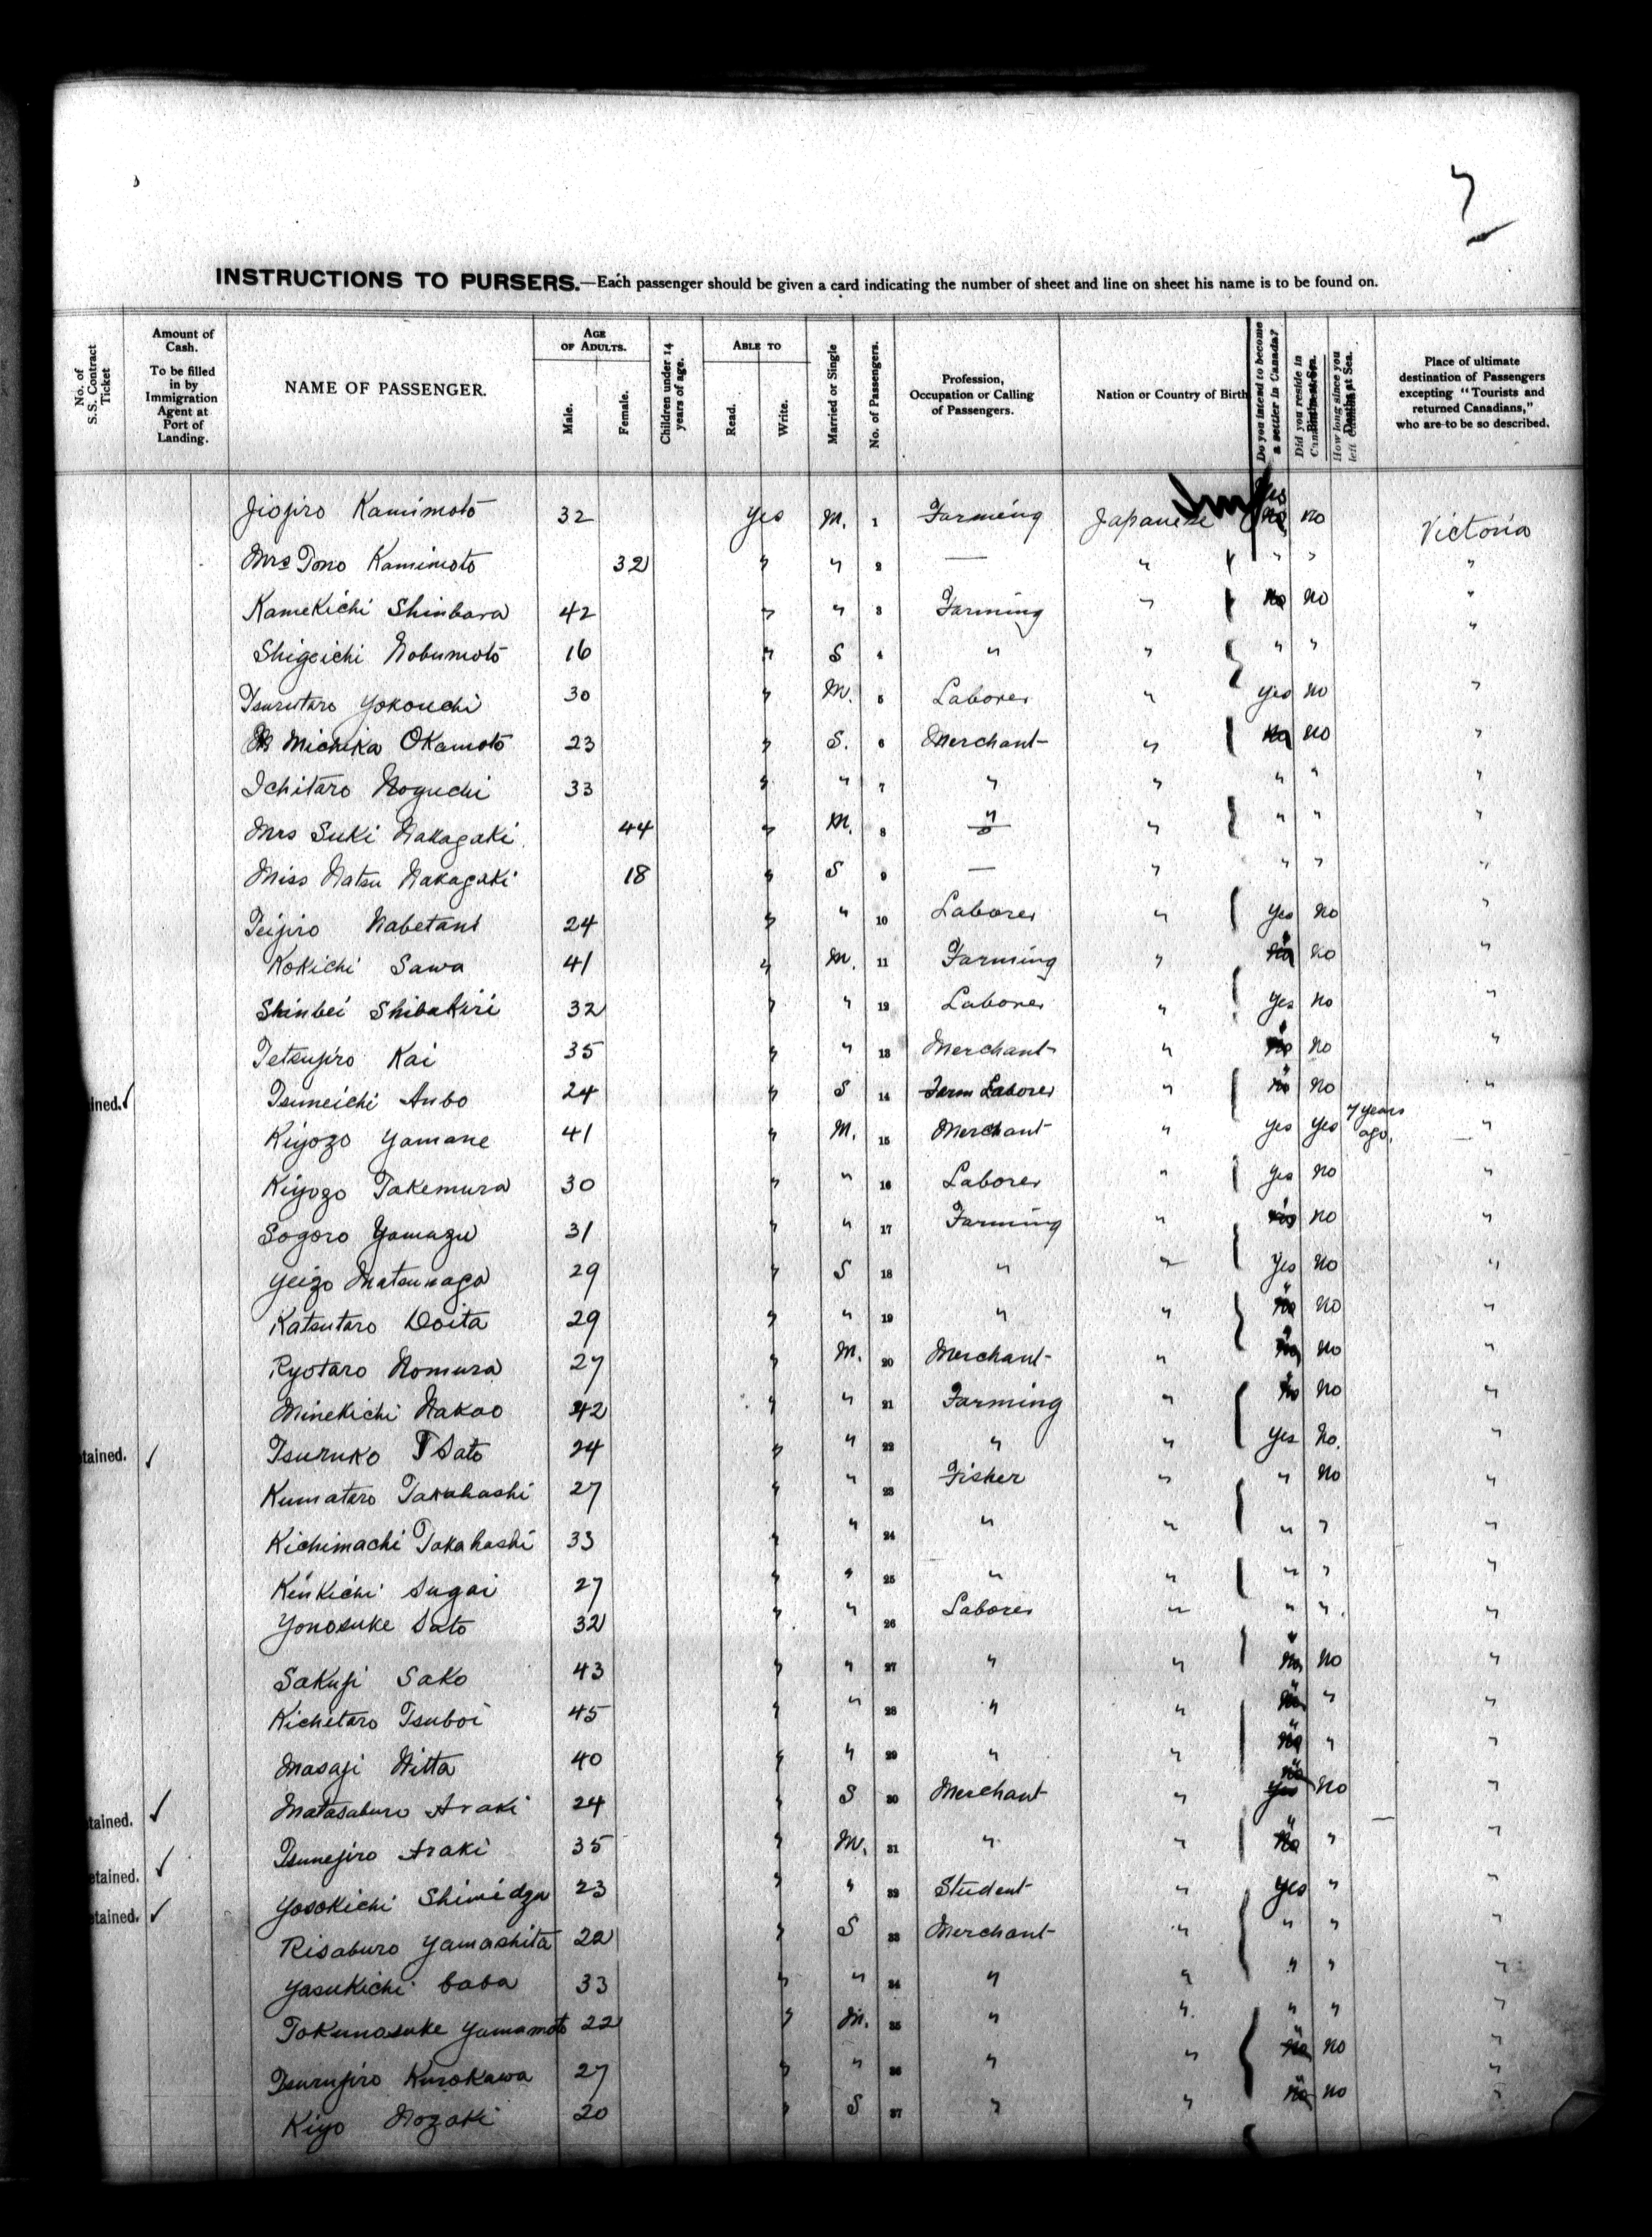 7
INSTRUCTIONS TO PURSERS.—Each passenger should be given a card indicating the number of sheet and line on sheet his name is to be found on.
No. of S.S. Contract Ticket
Amount of Cash. To be filled in by Immigration Agent at Port of Landing.
NAME OF PASSENGER.
AGE OF ADULTS.
Male.
Female.
Children under 14 years of age.
ABLE TO
Read.
Write.
Married or Single
No. of Passengers.
Profession, Occupation or Calling of Passengers.
Nation or Country of Birth
Do you intend to become a settler in Canada?
Did you reside in
How long since you left
Place of ultimate destination of Passengers excepting "Tourists and returned Canadians," who are to be so described.
Jiojiro Kamimoto 32 Yes M. 1 Farming Japanese Yes no no Victoria
Mrs Tono Kamimoto 32 " " 2 — " " " "
Kamekichi Shinbara 42 " " 3 Farming " no no "
Shigeichi Nobumoto 16 " S 4 " " " " "
Tsurutaro Yokouchi 30 " M. 5 Laborer " yes no "
Michika Okamoto 23 " S. 6 Merchant " no no "
Ichitaro Noguchi 33 " " 7 " " " " "
Mrs Suki Nakagaki 44 " M. 8 " " " " "
Miss Natsu Nakagaki 18 " S 9 — " " " "
Teijiro Nabetani 24 " " 10 Laborer " Yes no "
Kokichi Sawa 41 " M. 11 Farming " " no no "
Shinbei Shibakiri 32 " " 12 Laborer " Yes no "
Tetsujiro Kai 35 " " 13 Merchant " " no no "
ained. ✓ Tsuneichi Anbo 24 " S 14 Farm Laborer " " no no "
Kiyozo Yamane 41 " M. 15 Merchant " yes yes 7 years ago. "
Kiyozo Takemura 30 " " 16 Laborer " Yes no "
Sogoro Yamazu 31 " " 17 Farming " no no "
Yeizo Matsunaga 29 " S 18 " " Yes no "
Katsutaro Doita 29 " " 19 " " " no no "
Ryotaro Nomura 27 " M. 20 Merchant " " no no "
Minekichi Nakao 42 " " 21 Farming " " no no "
tained. ✓ Tsuruko Sato 24 " " 22 " " Yes no. "
Kumataro Takahashi 27 " " 23 Fisher " " no "
Kichimachi Takahashi 33 " " 24 " " " " "
Kenkichi Sugai 27 " " 25 " " " " "
Yonosuke Sato 32 " " 26 Laborer " " " "
Sakuji Sako 43 " " 27 " " " no no "
Kichetaro Tsuboi 45 " " 28 " " " no " "
Masaji Nitta 40 " " 29 " " " no " "
tained. ✓ Matasaburo Araki 24 " S 30 Merchant " no yes no "
Tsunejiro Araki 35 " M. 31 " " " no " "
etained. ✓ Yosokichi Shimidzu 23 " " 32 Student " yes " "
etained. ✓ Risaburo Yamashita 22 " S 33 Merchant " " " "
Yasukichi baba 33 " " 34 " " " " "
Tokunosuke Yamamoto 22 " M. 35 " " " " "
Tsurujiro Kurokawa 27 " " 36 " " " no no "
Kiyo Nozaki 20 " S 37 " " " no no "